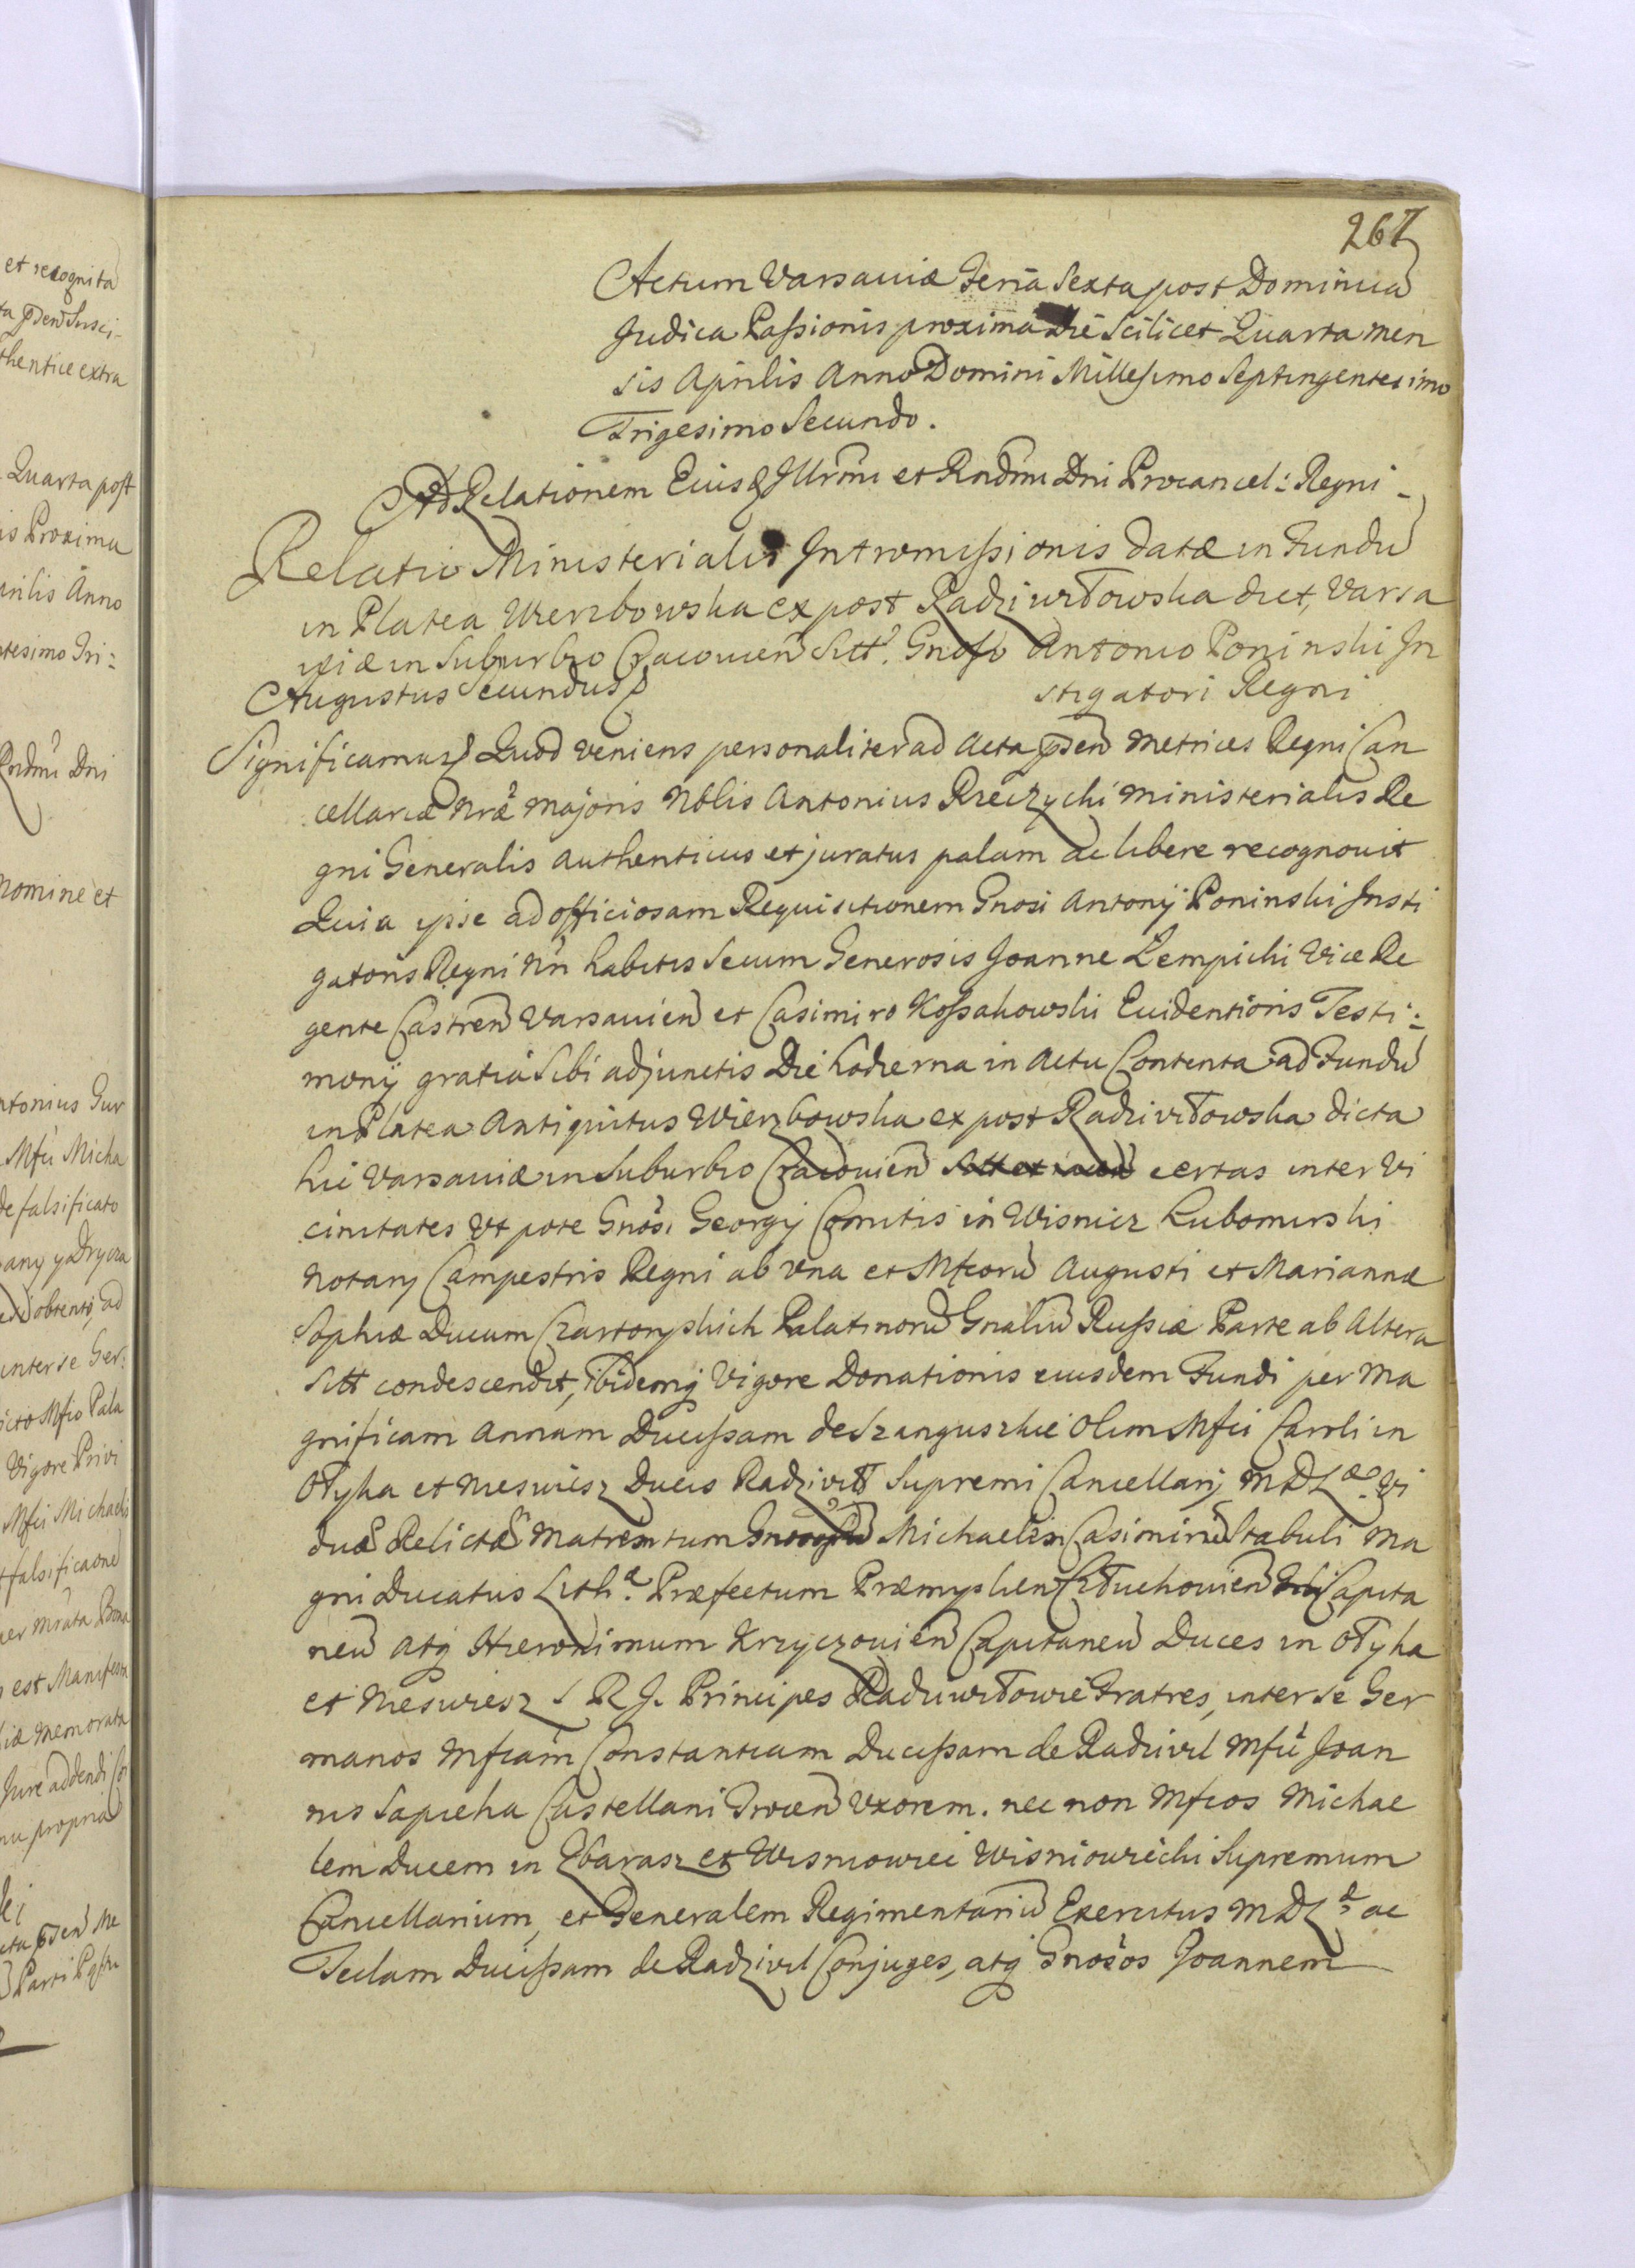 et recognita
ta pñden Susci-
thentice extra
Quarta post
is Proxima
prilis Anno
ntesimo Tri:
Rndmi Dni
nomine et
ntonius Gur
Mfci Micha
de falsificato
obtentis, ad
inter se Ger:
icto Mfco Pala
Vigore Privi
Mfci Michaelis
falsificaone
per mrata Bona
est Manifesta
iæ memorata
Jure addendi Con
nu propria
267
Actum Varsaviæ Feria Sexta post Dominicã
Judica Passionis proxima Die Scilicet Quarta men
sis Aprilis Anno Domini Millesimo Septingentesimo
Trigesimo Secundo.
Ad Relationem Eiusq Illrmi et Rndmi Dni Procancel: Regni.
Relatio Ministerialis Intromissionis datæ in Fundũ
in Platea Wierzbowska ex post Radziwiłłowska dict, Varsa
viæ in Suburbio Cracovien Sitt. Gnoso Antonio Poninski In
stigatori Regni
Augustus Secundus
Significamus Quod veniens personaliter ad Acta pñsen Metrices Regni Can
cellariæ Nræ Majoris Nblis Antonius Rzeczycki Ministerialis Re
gni Generalis authenticus et juratus palam ac libere recognovit
Quia ipse ad officiosam Requisitionem Gnosi Antonij Poninski Insti
gatoris Regni Nri habitis Secum Generosis Joanne Łempicki Vice Re
gente Castren Varsavien et Casimiro Kossakowski Evidentioris Testi:
monij gratiâ Sibi adjunctis Die hodierna in Actu Contenta ad Fundũ
in Platea Antiquitus Wierzbowska ex post Radziwiłłowska dicta
hic Varsaviæ in Suburbio Cracovien certas inter Vi
cinitates Ut pote Gnosi Georgij Comitis in Wisnicz Lubomirski
Notarij Campestris Regni ab una et Mfcorũ Augusti et Mariannæ
Sophiæ Ducum Czartoryskich Palatinorũ Gnaliũ Russiæ Parte ab Altera
Sitt condescendit, ibidemq Vigore Donationis eiusdem Fundi per Ma
gnificam Annam Ducissam de Szanguszkie Olim Mfci Caroli in
Ołyka et Nieswiesz Ducis Radziwiłł Supremi Cancellarij M D Læ Vi
duã Relictã Matrem tum Michaelem Casimirũ Stabuli Ma
gni Ducatus Lithæ Præfectum Præmyslien Człuchowien Capita
neũ atq Hieronimum Krzyczovien Capitaneũ Duces in Ołyka
et Nieswiesz S R J. Principes Radziwiłłowie Fratres, inter se Ger
manos Mfcam Constantiam Ducissam de Radzivil Mfci Joan
nis Sapieha Castellani Trocen Uxorem. nec non Mfcos Michae
lem Ducem in Zbarasz et Wisniowiec Wisniowiecki Supremum
Cancellarium, et Generalem Regimentariũ Exercitus M D Læ ac
Teclam Ducissam de Radzivil Conjuges, atq Gnosos Joannem